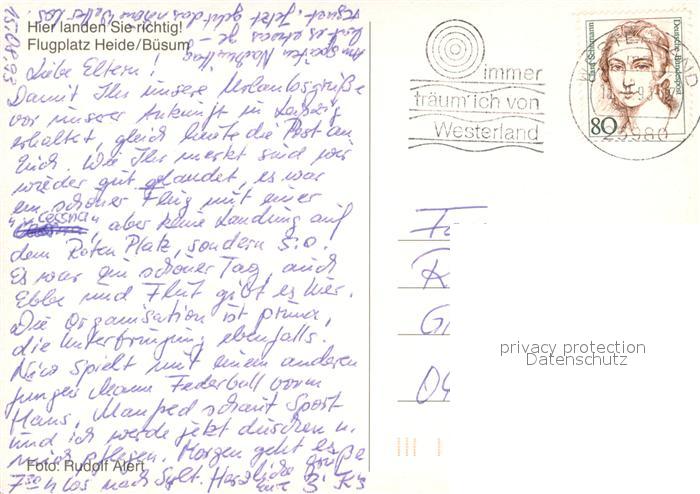 15.08.93
Hier landen Sie richtig!
Flugplatz Heide/Büsum
Am späten Nachmittag
hat es etwas ge-
regnet. Jetzt geht das
Liebe Eltern!
Damit Ihr unsere Urlaubsgrüße
vor unserer Ankunft in Leipzig
erhaltet, gleich heute die Post an
Euch. Wie Ihr merkt sind wir
wieder gut gelandet, es war
ein schöner Flug mit einer
"Cessna", aber keine Landung auf
dem Roten Platz, sondern s.o.
Es war ein schöner Tag, auch
Ebbe und Flut gibt es hier.
Die Organisation ist prima,
die Unterbringung ebenfalls.
Nico spielt mit einem anderen
jungen Mann Federball vorm
Haus, Manfred schaut Sport
und ich werde jetzt duschen u.
mich pflegen. Morgen geht es
Foto: Rudolf Alert
7³⁰ h los nach Sylt. Herzliche Grüße
Eure 3 K's
immer
träum'ich von
Westerland
Clara Schumann
Deutsche Bundespost
80
WESTERLAND
25980
F
K
G
04
privacy protection
Datenschutz